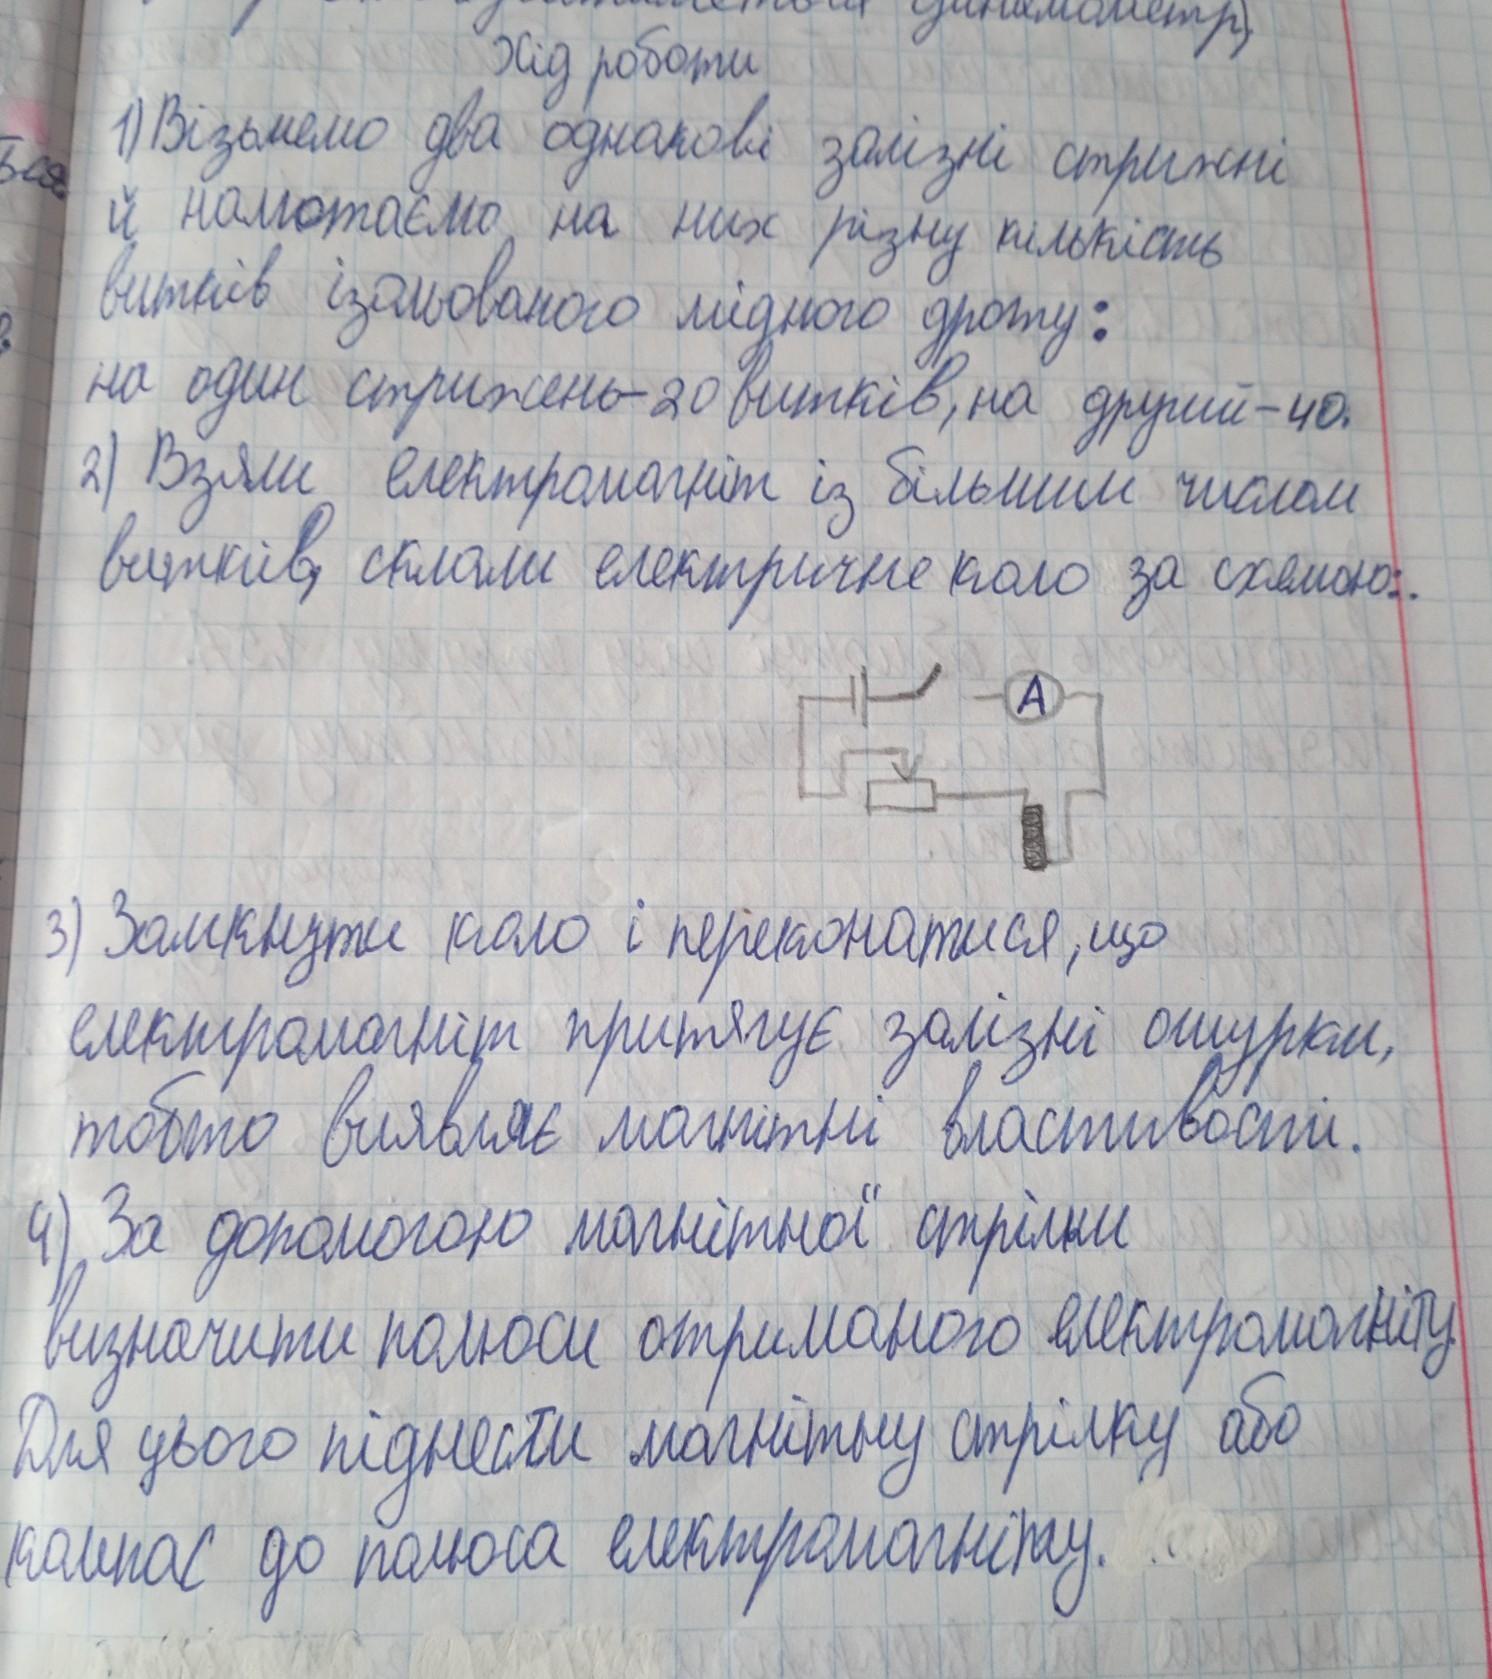 динамометр),
Хід роботи
1) Візьмемо два однакові залізні стрижні
й намотаємо на них різну кількість
витків ізольованого мідного дроту:
на один стрижень-20 витків, на другий-40.
2) Взяли електромагніт із більшим числом
витків, склали електричне коло за схемою:.
А
3) Замкнути коло і переконатися, що
електромагніт притягує залізні ошурки,
тобто виявляє магнітні властивості.
4) За допомогою магнітної стрілки
визначити полюси отриманого електромагніту.
Для цього піднести магнітну стрілку або
компас до полюса електромагніту.